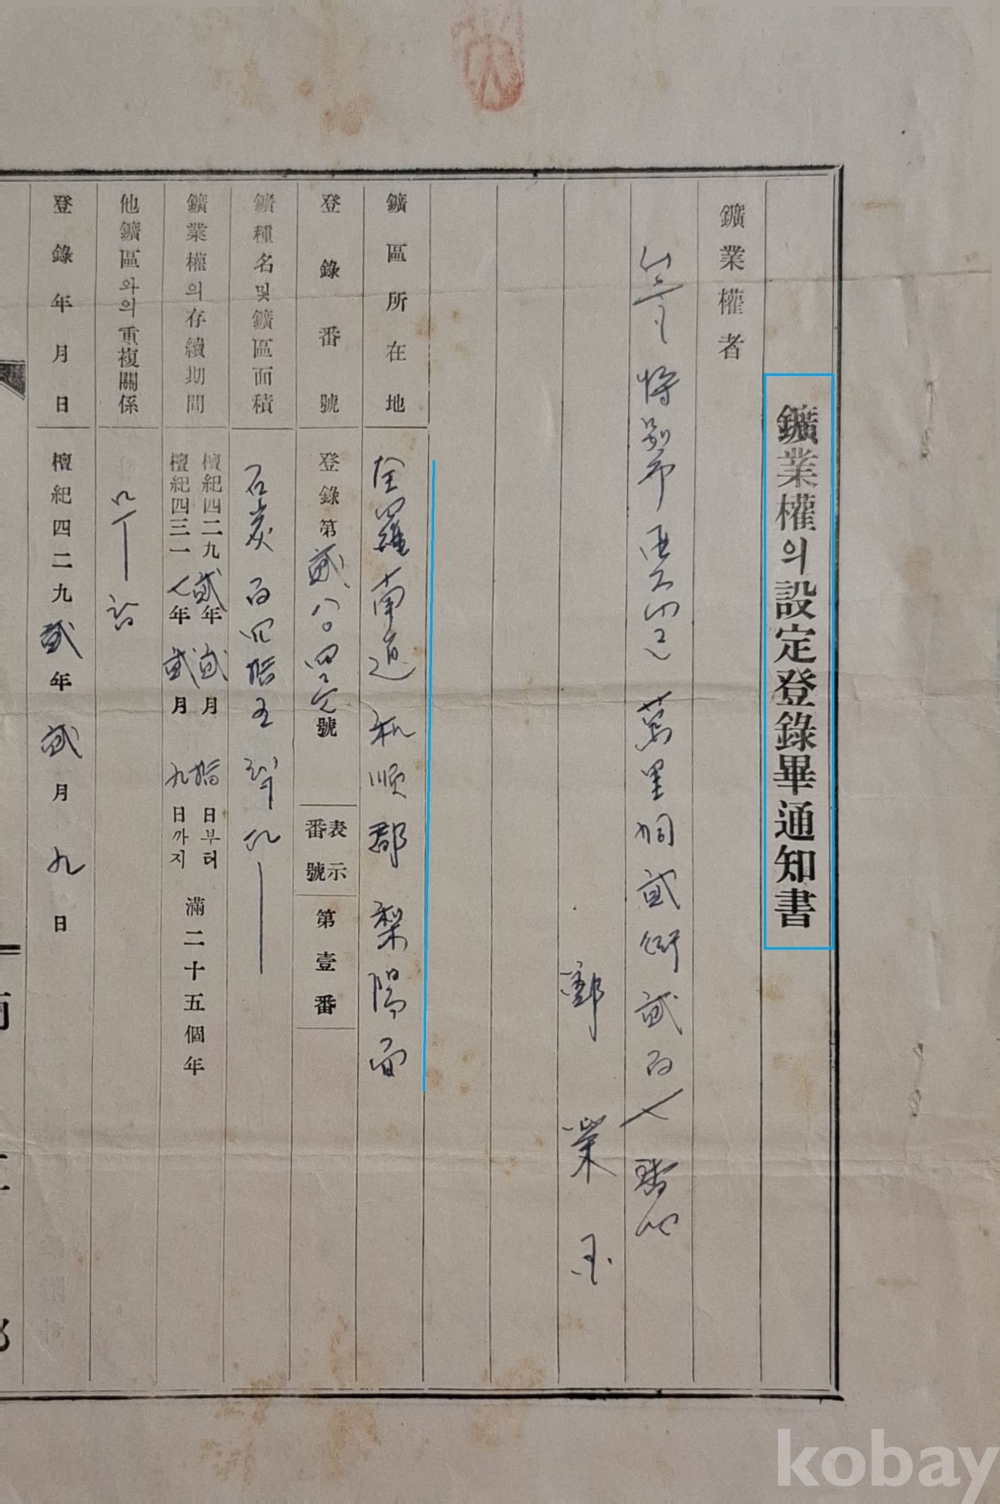 鑛業權의設定登錄畢通知書
鑛業權者
서울特別市 萬里洞貳街貳百
鄭
鑛區所在地 全羅南道和順郡梨陽面
登錄番號 登錄第貳八〇四六號 表示番號 第壹番
鑛種名및鑛區面積 石炭百四拾五
鑛業權의存續期間 檀紀四二九貳年貳月拾日부터
檀紀四三一七年貳月九日까지 滿二十五個年
他鑛區와의重複關係
登錄年月日 檀紀四二九貳年貳月九日
kobay